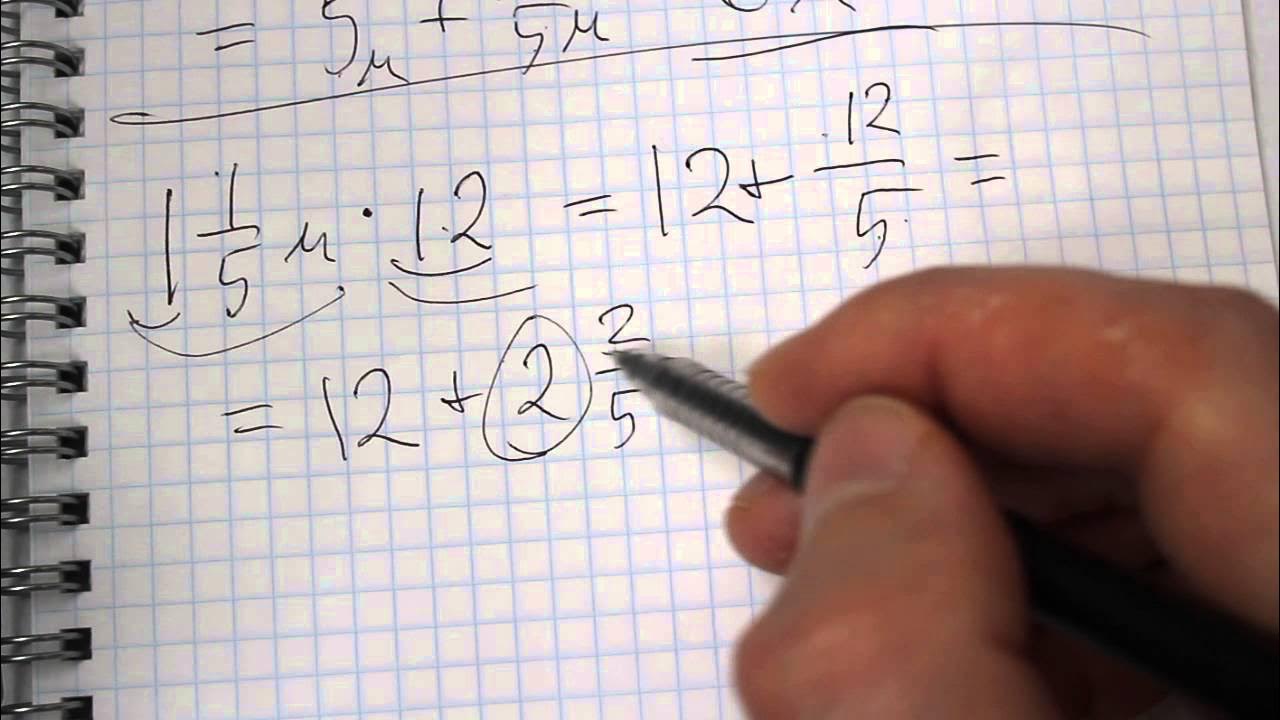 = 5м + 1/5м
1 1/5 м · 12 = 12 + 12/5 =
= 12 + 2 2/5